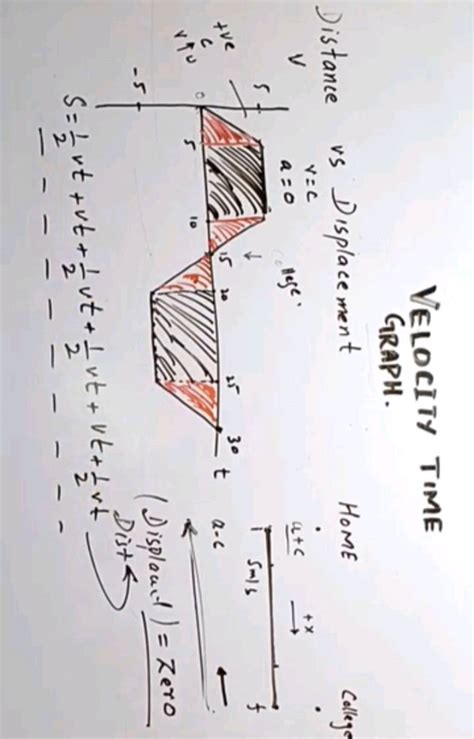 VELOCITY TIME
GRAPH.
Distance vs Displacement
V
+ve
c
v↑u
5
v=c
a=0
College.
0
5
10
15
20
25
30
t
-5
HOME
College
a+c
+x
→
i
5m/s
f
a-c
(Displacmt) = Zero
Dist
S = 1/2 vt + vt + 1/2 vt + 1/2 vt + vt + 1/2 vt